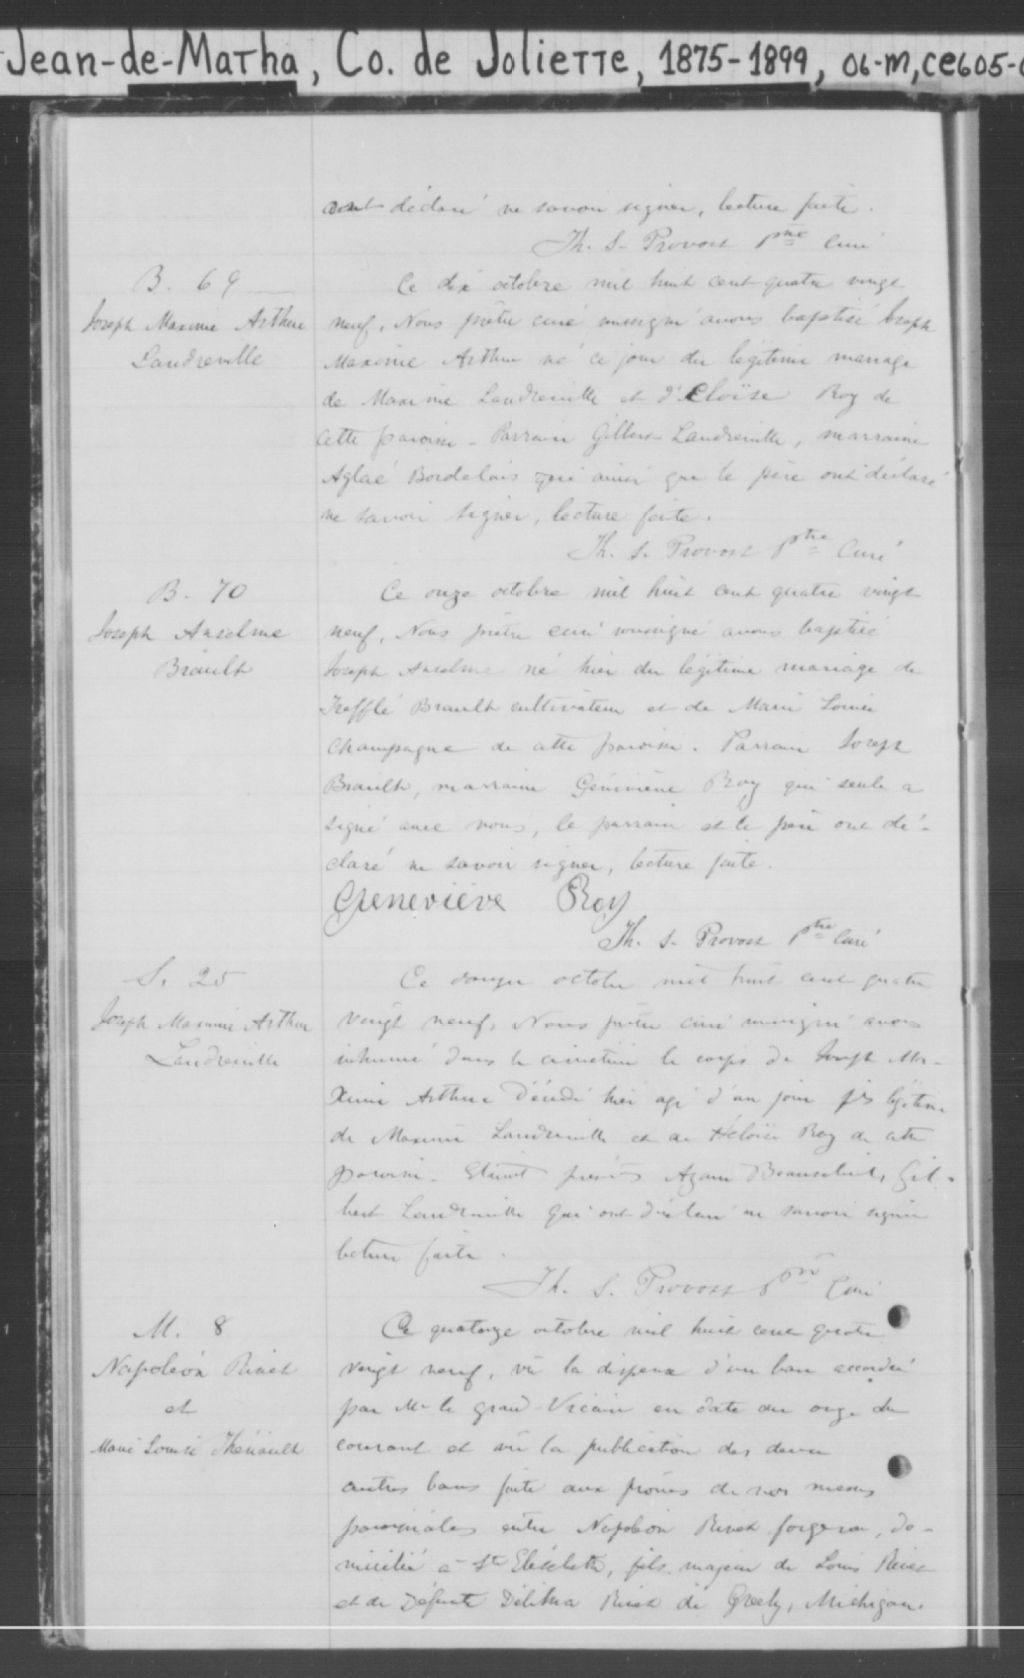 Jean-de-Matha, Co. de Joliette, 1875-1899, 06-M, CE605-
ont déclaré ne savoir signer, lecture faite.
Th. S. Provost Ptre Curé
B. 69
Joseph Maxime Arthur
Landreville
Ce dix octobre mil huit cent quatre vingt
neuf, Nous prêtre curé soussigné avons baptisé Joseph
Maxime Arthur né ce jour du légitime mariage
de Maxime Landreville et d'Eloïse Roy de
cette paroisse. Parrain Gilbert Landreville, marraine
Aglaé Bordelais qui ainsi que le père ont déclaré
ne savoir signer, lecture faite.
Th. S. Provost Ptre Curé
B. 70
Joseph Anselme
Brault
Ce onze octobre mil huit cent quatre vingt
neuf, Nous prêtre curé soussigné avons baptisé
Joseph Anselme né hier du légitime mariage de
Trefflé Brault cultivateur et de Marie Louise
Champagne de cette paroisse. Parrain Joseph
Brault, marraine Géneviève Roy qui seule a
signé avec nous, le parrain et le père ont dé-
claré ne savoir signer, lecture faite.
Geneviève Roy
Th. S. Provost Ptre Curé
S. 25
Joseph Maxime Arthur
Landreville
Ce douze octobre mil huit cent quatre
vingt neuf, Nous prêtre curé soussigné avons
inhumé dans le cimetière le corps de Joseph Ma-
xime Arthur décédé hier agé d'un jour fils légitime
de Maxime Landreville et de Héloïse Roy de cette
paroisse. Etaient présents Gil-
bert Landreville qui ont déclaré ne savoir signer
lecture faite.
Th. S. Provost Ptre Curé
M. 8
Napoléon Rivest
et
Marie Louise Thériault
Ce quatorze octobre mil huit cent quatre
vingt neuf, vu la dispense d'un ban accordée
par Mr le grand-Vicaire en date du onze du
courant et vu la publication des deux
autres bans faite aux prônes de nos messes
paroissiales entre Napoléon Rivest forgeron, do-
micilié à Ste Elisabeth, fils majeur de Louis Rivest
et de Défunte Rivest de Greely, Michigan.